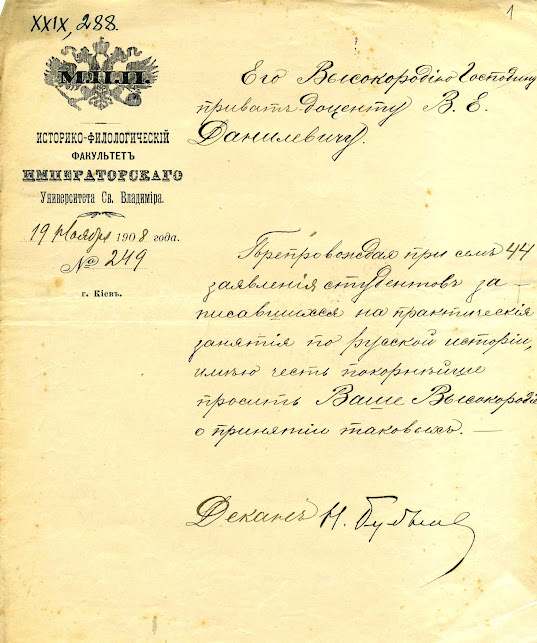 XXIX, 288.
1
М.Н.П.
ИСТОРИКО-ФИЛОЛОГИЧЕСКІЙ
ФАКУЛЬТЕТЪ
ИМПЕРАТОРСКАГО
Университета Св. Владиміра.
19 Ноября 1908 года.
№ 249
г. Кіевъ.
Его Высокородію Господину
приватъ-доценту В. Е.
Данилевичу.
Препровождая при семъ 44
заявленія студентовъ за-
писавшихся на практическія
занятія по русской исторіи,
имѣю честь покорнѣйше
просить Ваше Высокородіе
о принятіи таковыхъ. —
Деканъ Н.